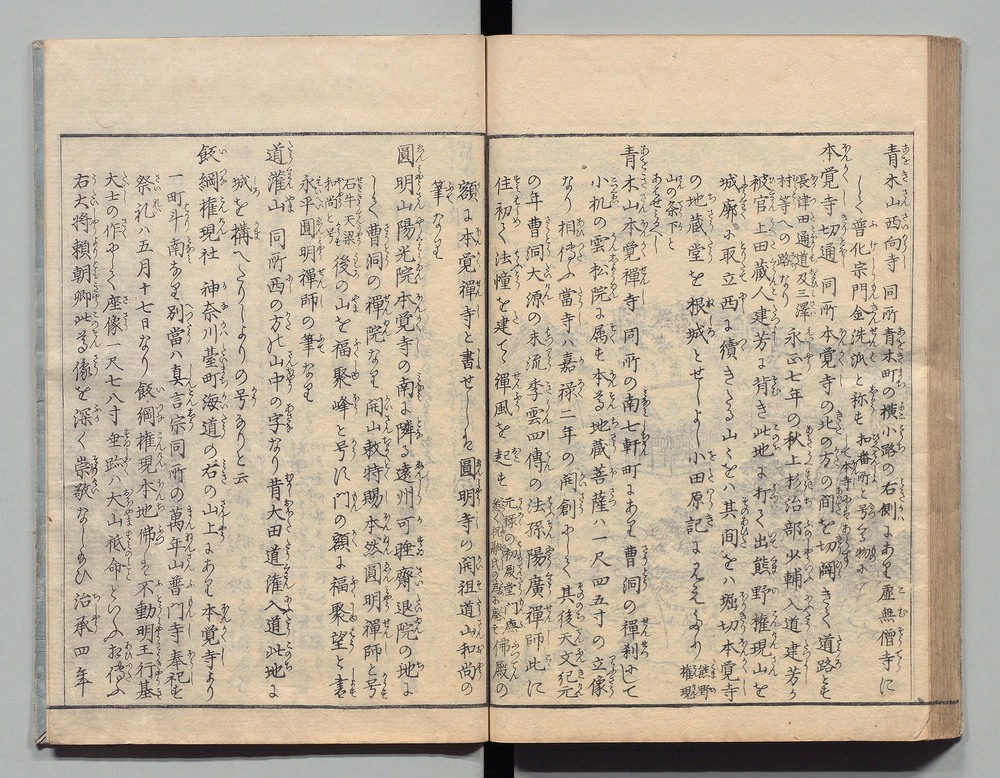 青木山西向寺 同所青木町の横小路の右側にあり虚無僧寺に
しく普化宗門金洗派と称も
本覚寺切通 同所本覚寺の北の方の間を切開きて道路とも
長津田通道及三澤
村等への路なり
永正七年の秋上杉治部少輔入道建芳が
被官上田蔵人建芳に背き此地に打て出熊野権現山を
城廓に取立西に續きたる山々をハ其間をハ堀切本覚寺
の地蔵堂を根城とせしよし小田原記にみえたり
熊野
権現
山の条下と
あハせミるへし
青木山本覚禪寺 同所の南七軒町にあり曹洞の禪刹にして
小机の雲松院に属も本尊地蔵菩薩ハ一尺四五寸の立像
なり相傳ふ當寺ハ嘉禄二年の開創にして其後天文紀元
の年曹洞大源の末流季雲四傳の法孫陽廣禪師此に
住初て法幢を建て禪風を起も
佛殿の
額に本覚禪寺と書せしハ圓明寺の開祖道山和尚の
筆なり
圓明山陽光院本覚寺の南に隣る遠州可睡齋退院の地に
しく曹洞の禪院なり開山敕特賜本然圓明禪師と号
石牛天梁
和尚と号
後の山を福聚峰と号に門の額に福聚望と書
永平圓明禪師の筆なり
道灌山 同所西の方の山中の字なり昔大田道灌入道此地に
城を構へたりしよりの号なりと云
飯綱権現社 神奈川臺町海道の右の山上にあり本覚寺より
一町斗南なり別當ハ真言宗同所の萬年山普門寺奉祀も
祭礼ハ五月十七日なり飯綱権現本地佛ハ不動明王行基
大士の作にして座像一尺七八寸垂跡ハ大山祇命といふ相傳ふ
右大将頼朝卿此尊像を深く崇敬なしたまひ治承四年